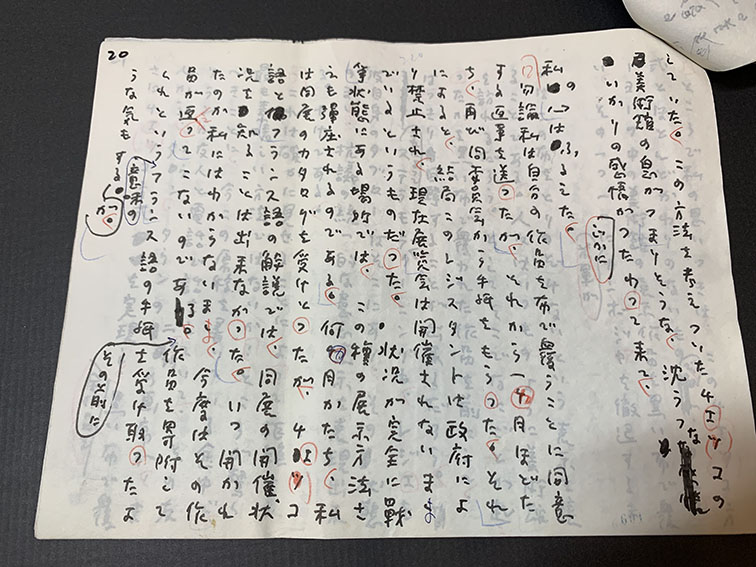 20
していた。この方法を考えついたチェッコの
美術館の息がつまりそうな、沈うつな
いかりの感情がつたわって来て、
私の心はふるえた。
じかに
勿論私は自分の作品を布で覆うことに同意
する返事を送ったが、それから一ヶ月ほどた
ち、再び同委員会から手紙をもらった。それ
によると、結局このレジスタントは政府によ
り禁止され、現在展覧会は開催されないまま
でいるというものだった。状況が完全に戦
争状態にある場所では、この種の展示方法さ
えも弾圧されるのである。何ヶ月かたち、私
は同展のカタログを受けとったが、チェッコ
語とフランス語の解説では、同展の開催状
況を知ることは出来なかった。いつ開かれ
たのか私にはわからないまま、今度はその作
品が返ってこないのである。作品を寄附して
くれというフランス語の手紙を受け取ったよ
うな気もするが。
意味の
その前に